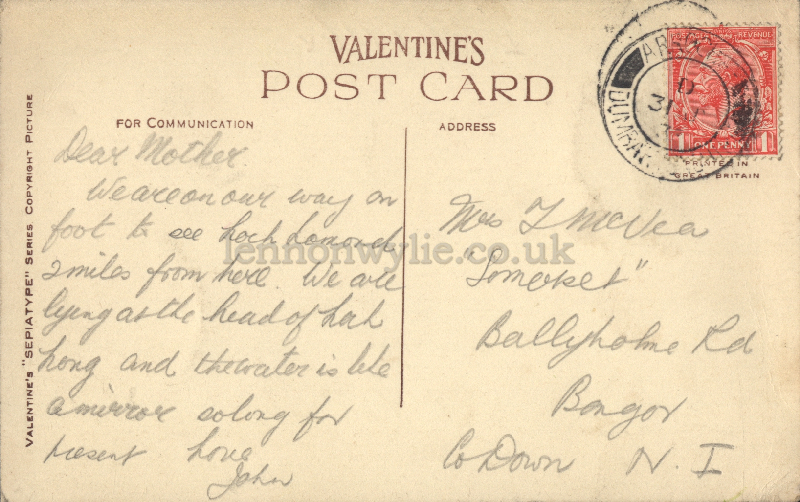 VALENTINE'S
POST CARD
FOR COMMUNICATION
ADDRESS
VALENTINE'S "SEPIATYPE" SERIES COPYRIGHT PICTURE
Dear Mother.
We are on our way on
foot to see Loch Lomond
2 miles from here. We are
lying at the head of Loch
Long and the water is like
a mirror so long for
present Love
John
Mrs McVea
"Somerset"
Ballyholme Rd
Bangor
Co Down N. I
POSTAGE REVENUE
1 ONE PENNY 1
PRINTED IN
GREAT BRITAIN
31
lennonwylie.co.uk